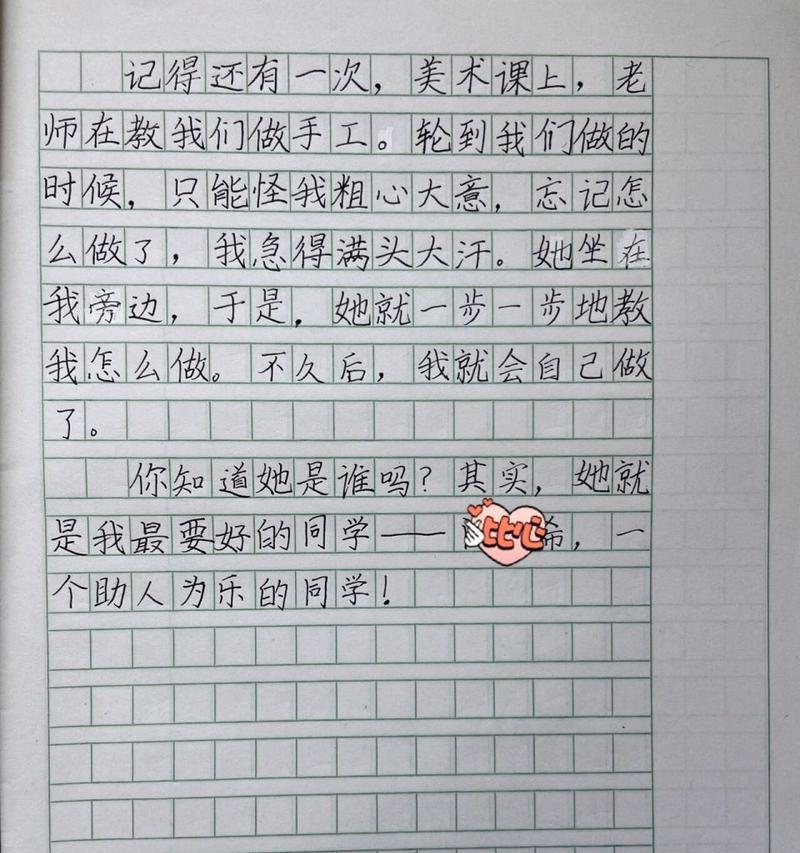 记得还有一次，美术课上，老
师在教我们做手工。轮到我们做的
时候，只能怪我粗心大意，忘记怎
么做了，我急得满头大汗。她坐在
我旁边，于是，她就一步一步地教
我怎么做。不久后，我就会自己做
了。
你知道她是谁吗？其实，她就
是我最要好的同学——比心希，一
个助人为乐的同学！